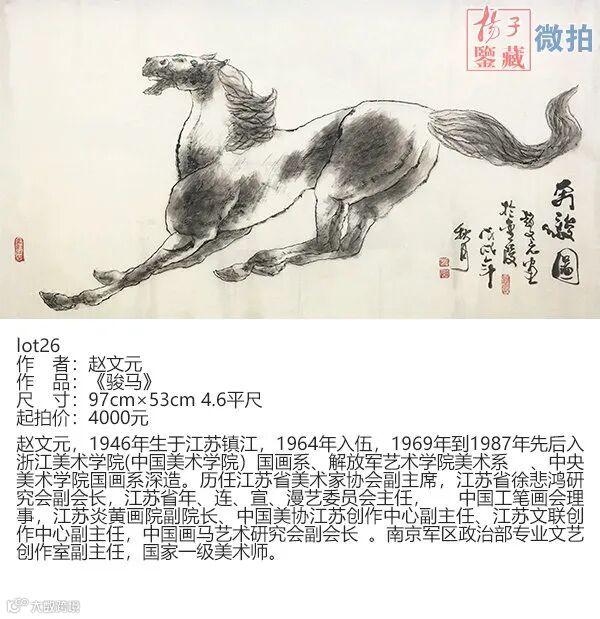 杨子
鉴藏
微拍
奔骏图
文元画
于金陵
戊戌年
秋月
lot26
作　者：赵文元
作　品：《骏马》
尺　寸：97cm×53cm 4.6平尺
起拍价：4000元
赵文元，1946年生于江苏镇江，1964年入伍，1969年到1987年先后入
浙江美术学院(中国美术学院）国画系、解放军艺术学院美术系　、中央
美术学院国画系深造。历任江苏省美术家协会副主席，江苏省徐悲鸿研
究会副会长，江苏省年、连、宣、漫艺委员会主任，　　中国工笔画会理
事，江苏炎黄画院副院长、中国美协江苏创作中心副主任、江苏文联创
作中心副主任，中国画马艺术研究会副会长 。南京军区政治部专业文艺
创作室副主任，国家一级美术师。
大数跨境